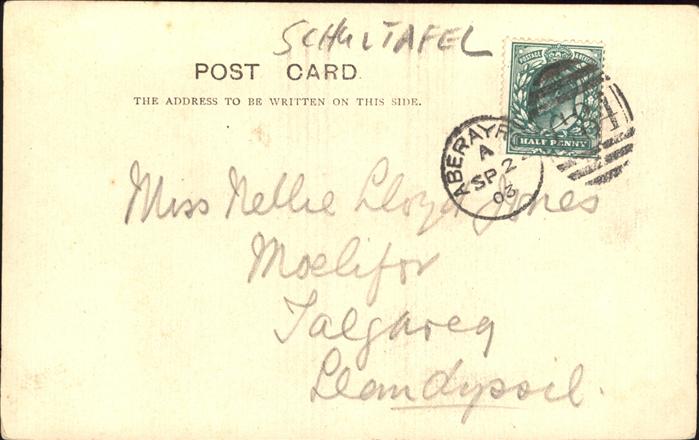 SCHULTAFEL
POST CARD.
THE ADDRESS TO BE WRITTEN ON THIS SIDE.
POSTAGE
HALF PENNY
ABERAYR
A
SP 2
03
Miss Nellie Lloyd Jones
Moelifor
Talgareg
Llandyssil.